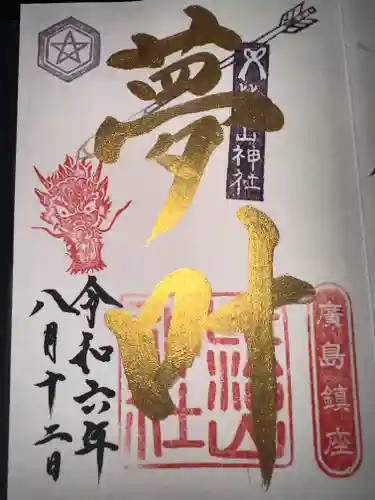 夢叶
山神社
廣島鎮座
令和六年
八月十二日